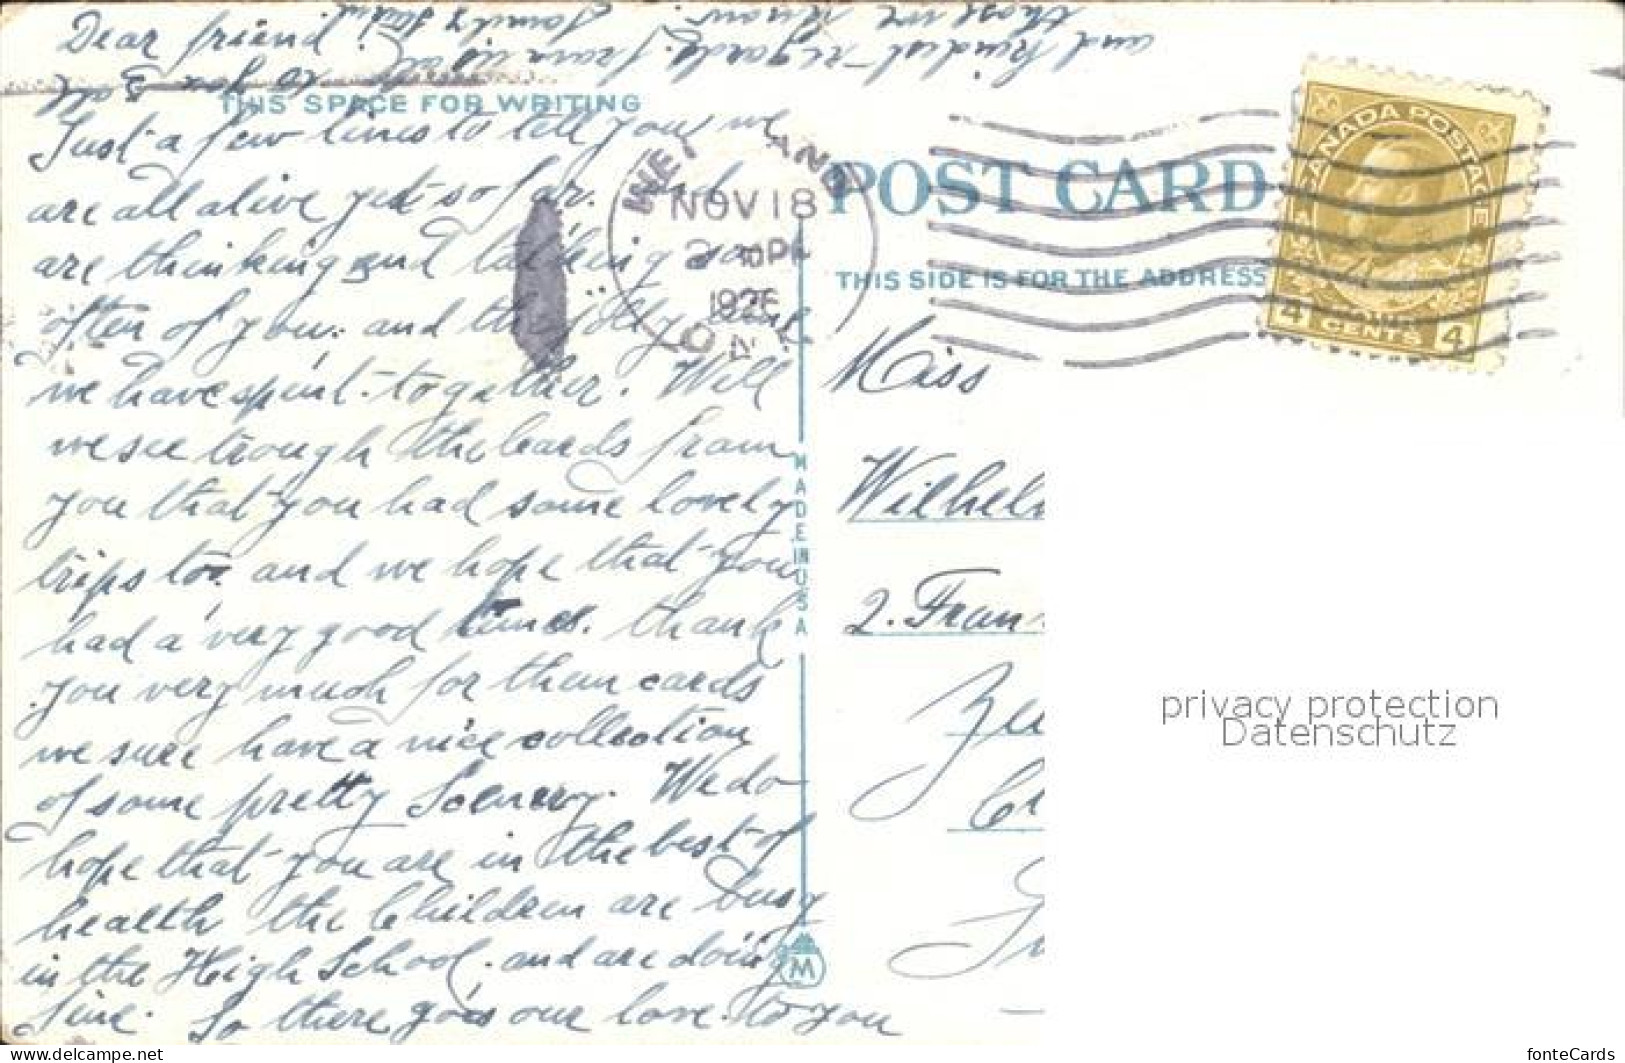 Dear friend.
THIS SPACE FOR WRITING
Just a few lines to tell you we
are all alive yet so far. and
are thinking and talking so
often of you. and the jolly time
we have spent together. Will
we see trough the cards from
you that you had some lovely
trips to. and we hope that you
had a very good times. thank
you very much for them cards
we sure have a nice collection
of some pretty Scenery. We do
hope that you are in the best of
health the Children are busy
in the High School. and are doing
fine. So there goes our love. to you
and kindest regards. from us all to you & all
those we know. family
POST CARD
THIS SIDE IS FOR THE ADDRESS
MADE IN USA
M
WEL AND
NOV 18
PM
1926
ONT
CANADA POSTAGE
4 CENTS 4
Miss
Wilhel
2. Fran
privacy protection
Datenschutz
www.delcampe.net
fonteCards